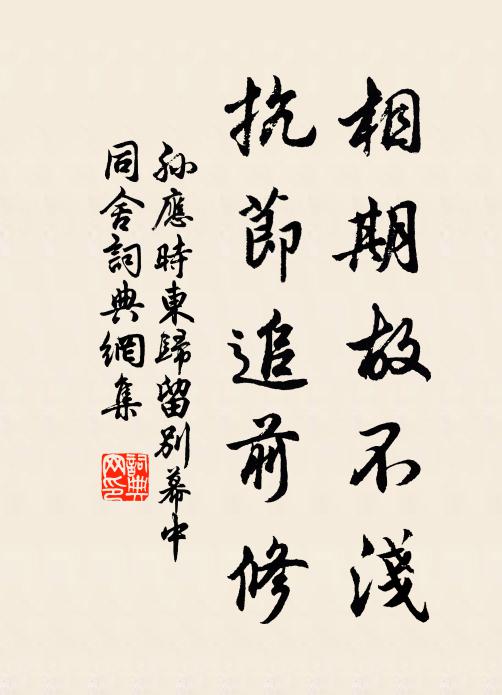 相期故不淺
抗節追前修
孫應時東歸留別幕中
同舍詞典網集
詞典網印